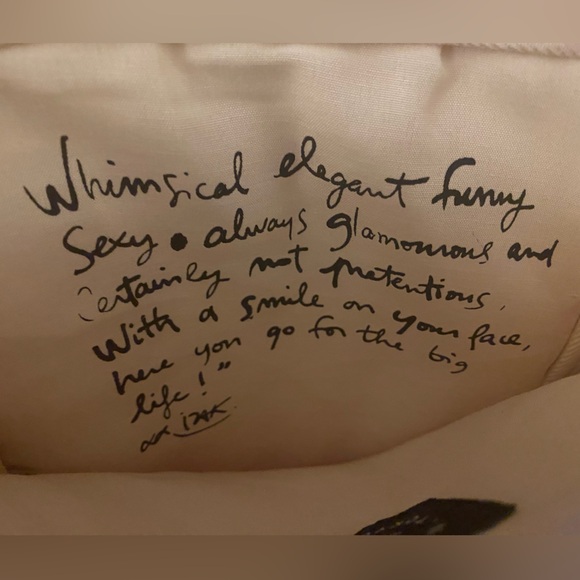 Whimsical elegant funny
Sexy • always glamourous and
Certainly not pretentious.
With a smile on your face,
here you go for the big
life!"
xx IZAK